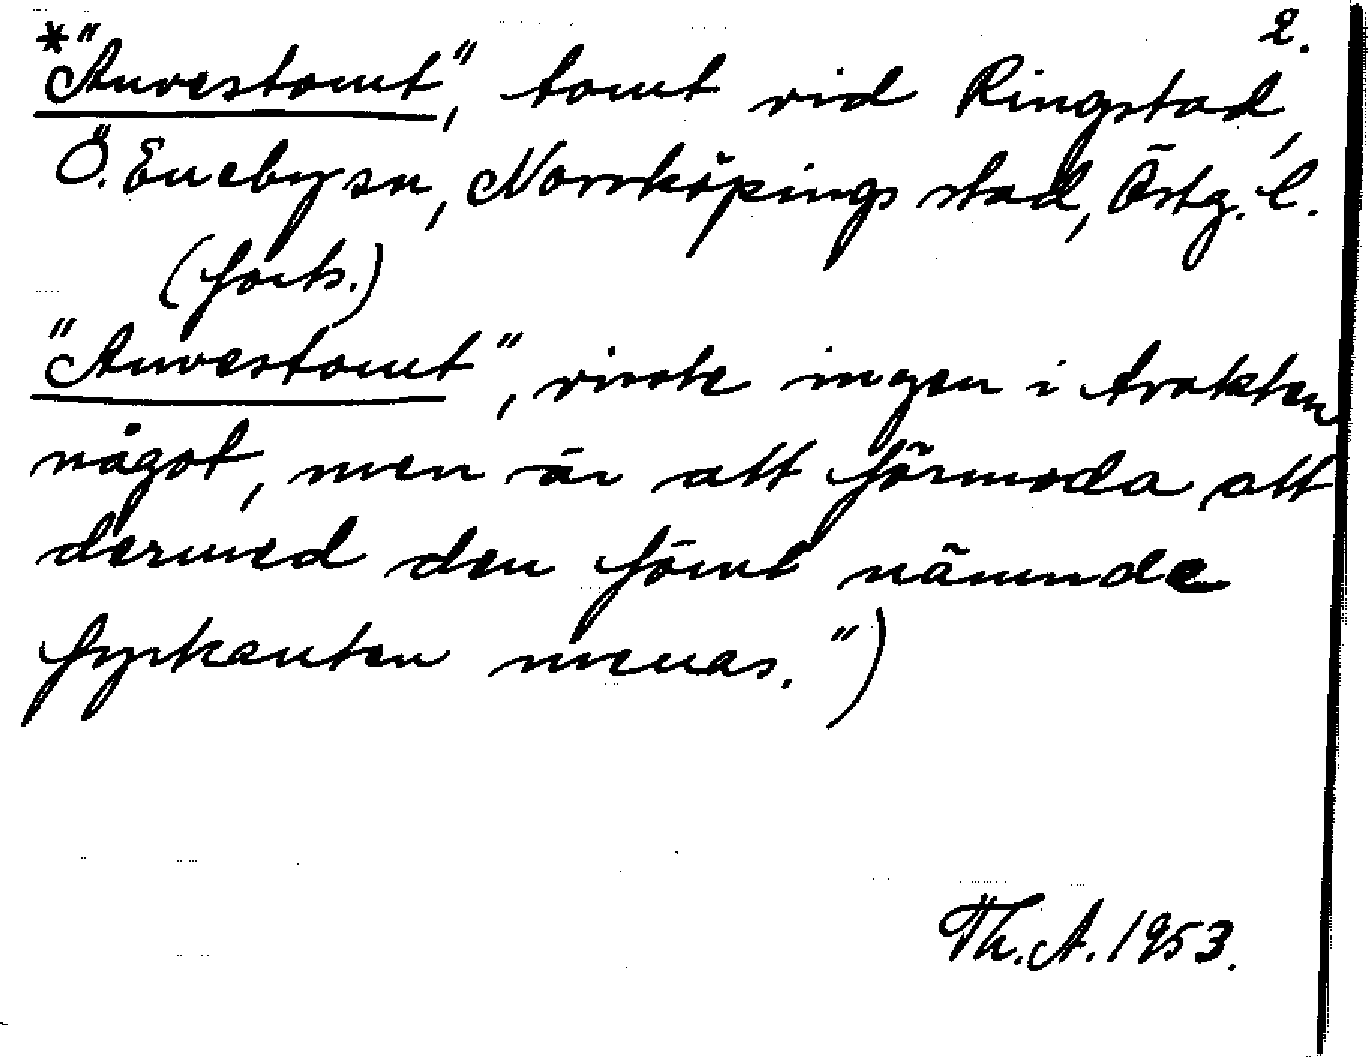 2.
*"Anvestomt", tomt vid Ringstad,
Ö. Eneby sn, Norrköpings stad, Östg. l.
(forts.)
"Anvestomt", visste ingen i trakten
något, men är att förmoda att
dermed den förut nämnde
fyrkanten menas.")
Th. A. 1953.